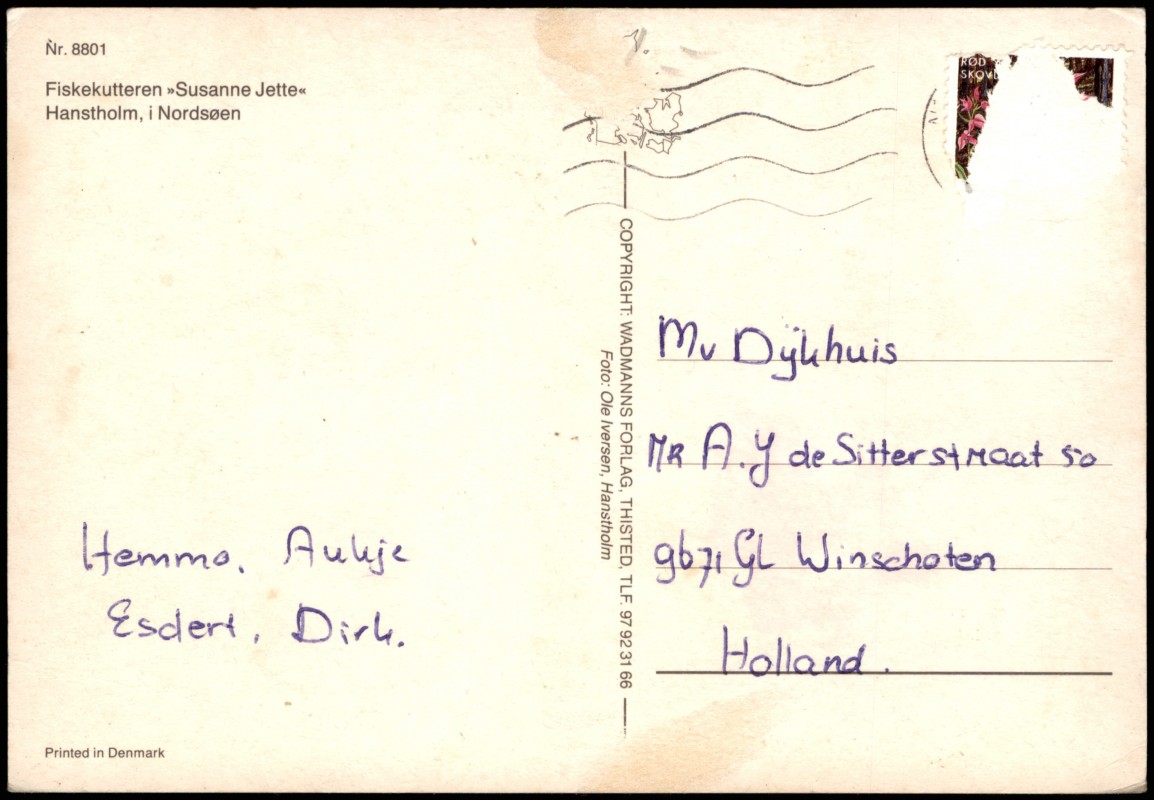 Nr. 8801
Fiskekutteren »Susanne Jette«
Hanstholm, i Nordsøen
RØD
COPYRIGHT: WADMANNS FORLAG, THISTED, TLF. 97 92 31 66
Foto: Ole Iversen, Hanstholm
Mv Dijkhuis
MR A. J de Sitterstraat 50
9671 GL Winschoten
Holland.
Hemmo, Aukje
Esdert, Dirk.
Printed in Denmark